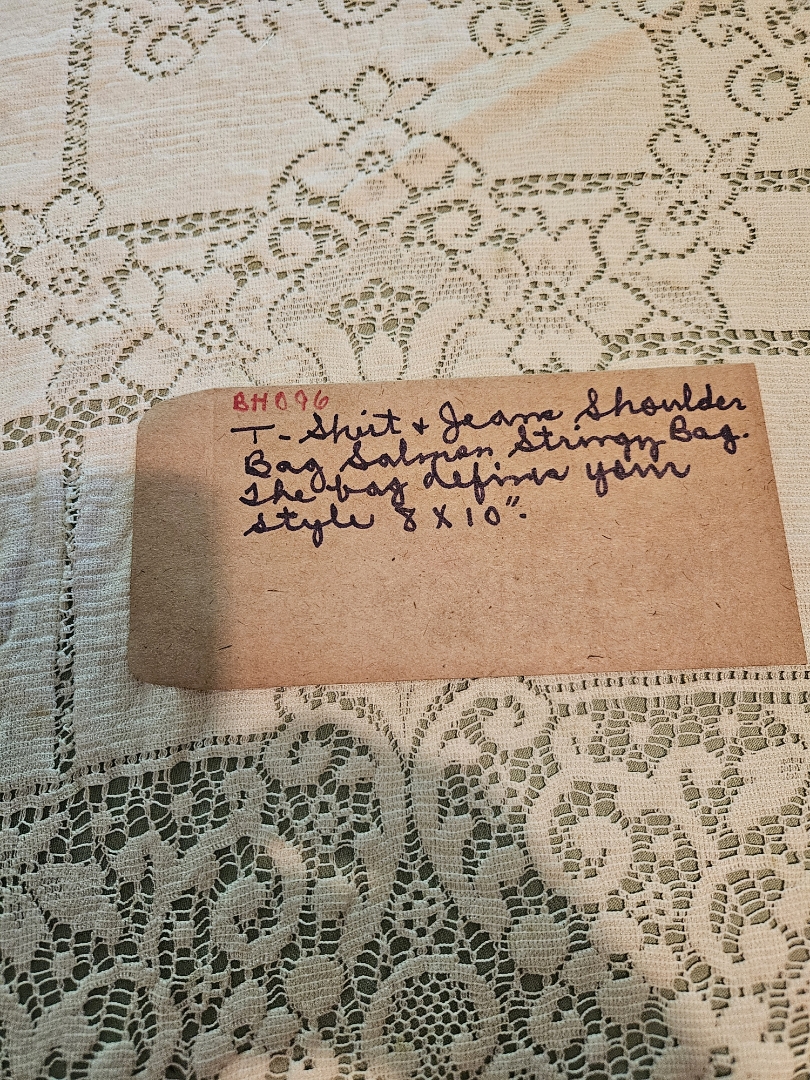 BH096
T-Shirt + Jeans Shoulder
Bag Salmon Stringy Bag.
The bag defines your
style 8 X 10".